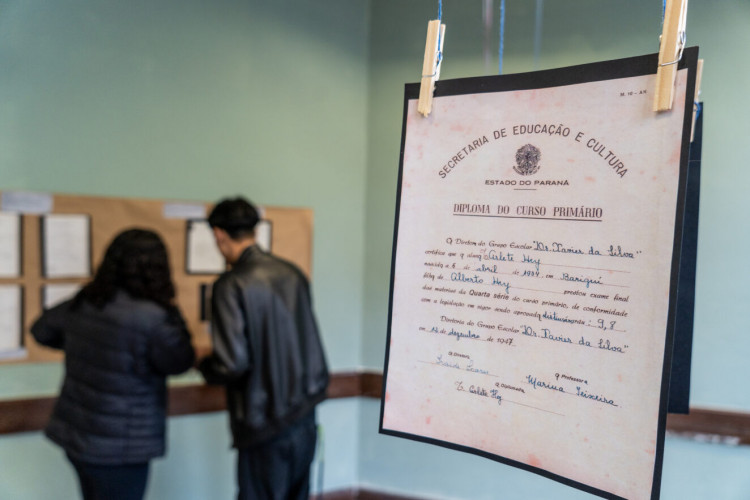 M. 19 - A9
SECRETARIA DE EDUCAÇÃO E CULTURA
ESTADO DO PARANÁ
DIPLOMA DO CURSO PRIMÁRIO
O Diretor do Grupo Escolar "Dr. Xavier da Silva"
certifica que o alun Arlete Hey
nascid a 6 de abril de 1937, em Bariguí
filh a de Alberto Hey prestou exame final
das matérias da Quarta série do curso primário, de conformidade
com a legislação em vigor sendo aprovad : 9,8
Diretoria do Grupo Escolar "Dr. Xavier da Silva"
em de dezembro de 1947.
O Diretor, O Professor,
Marina Teixeira
O Diplomado,
Arlete Hey